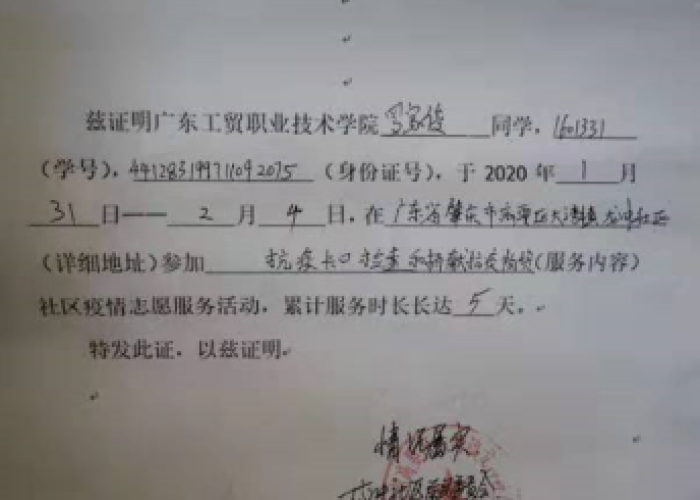 兹证明广东工贸职业技术学院罗家俊同学，1601331
（学号），441283199711092075（身份证号），于 2020 年 1 月
31 日—— 2 月 4 日，在广东省肇庆市高要区大湾镇
（详细地址）参加抗疫卡口检查和捐献抗疫物资（服务内容）
社区疫情志愿服务活动，累计服务时长长达 5 天。
特发此证，以兹证明。
情况属实